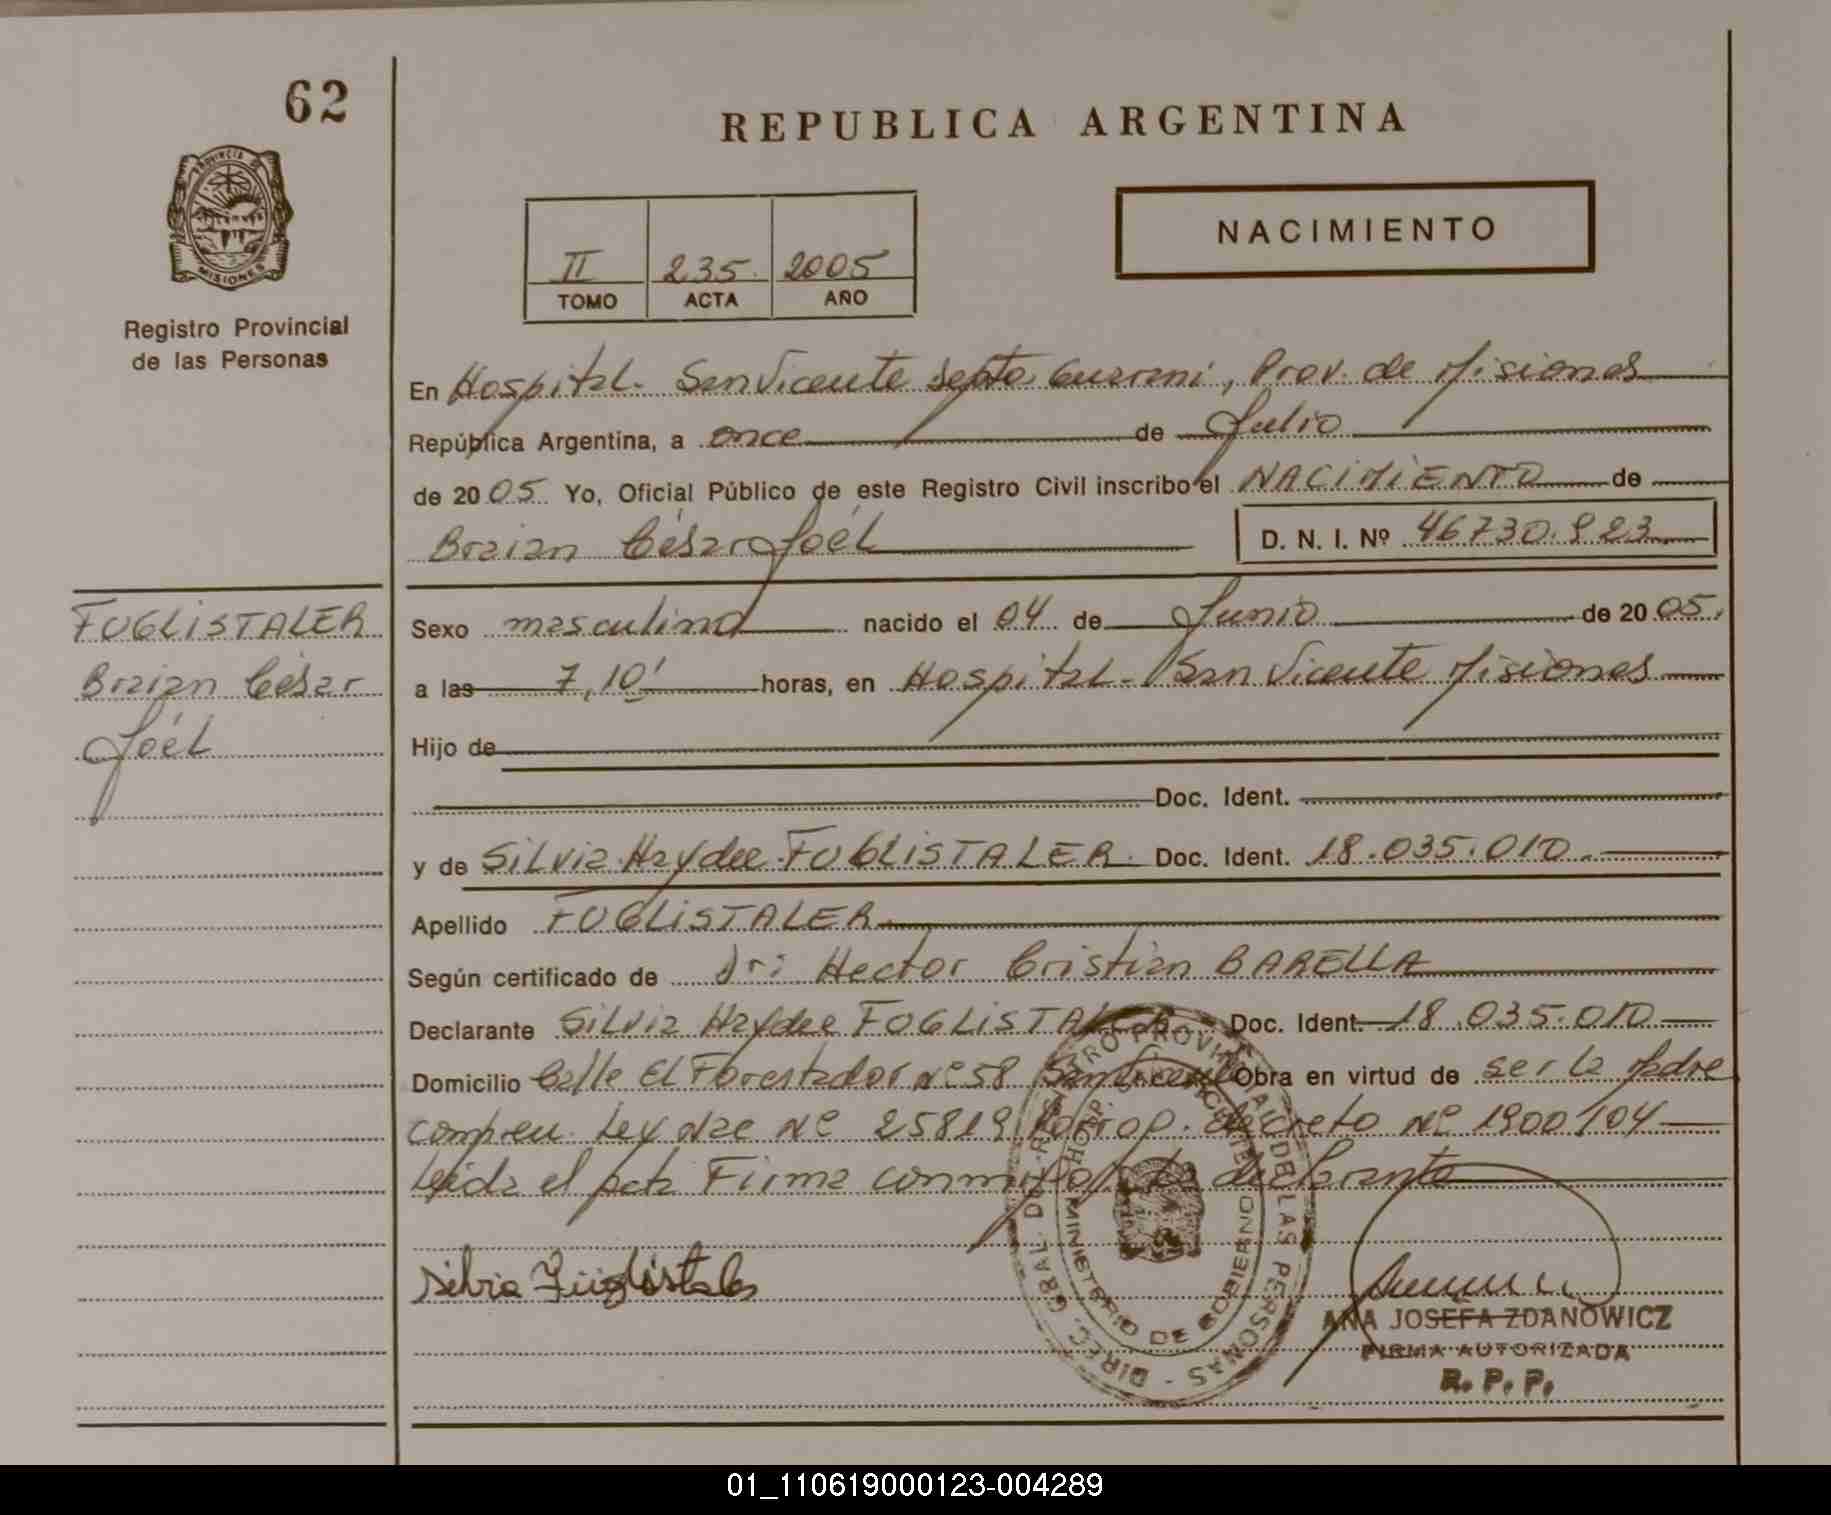 62
REPUBLICA ARGENTINA
PROVINCIA DE
MISIONES
Registro Provincial
de las Personas
NACIMIENTO
II 235 2005
TOMO ACTA AÑO
En Hospital - San Vicente Depto Guarani, Prov. de Misiones
República Argentina, a once de Julio
de 2005 Yo, Oficial Público de este Registro Civil inscribo el NACIMIENTO de
Braian César Joél D. N. I. Nº 46730.923
FUGLISTALER
Braian César
Joél
Sexo masculino nacido el 04 de Junio de 2005.
a las 7,10' horas, en Hospital - San Vicente Misiones
Hijo de
Doc. Ident.
y de Silvia Haydee FUGLISTALER Doc. Ident. 18.035.010
Apellido FUGLISTALER
Según certificado de Dr: Hector Cristian BARELLA
Declarante Silvia Haydee FUGLISTALER Doc. Ident. 18.035.010
Domicilio Calle El Forestador Nº 58 San Vicente Obra en virtud de ser la Madre
Ley Nac Nº 25819 Decreto Nº 1900/04
Leida el acta Firma conmigo la declarante
DIREC. GRAL. DEL REGISTRO PROVINCIAL DE LAS PERSONAS
HOSP. SAN VICENTE
MINISTERIO DE GOBIERNO
Silvia Füglistaler
ANA JOSEFA ZDANOWICZ
FIRMA AUTORIZADA
R. P. P.
01_110619000123-004289